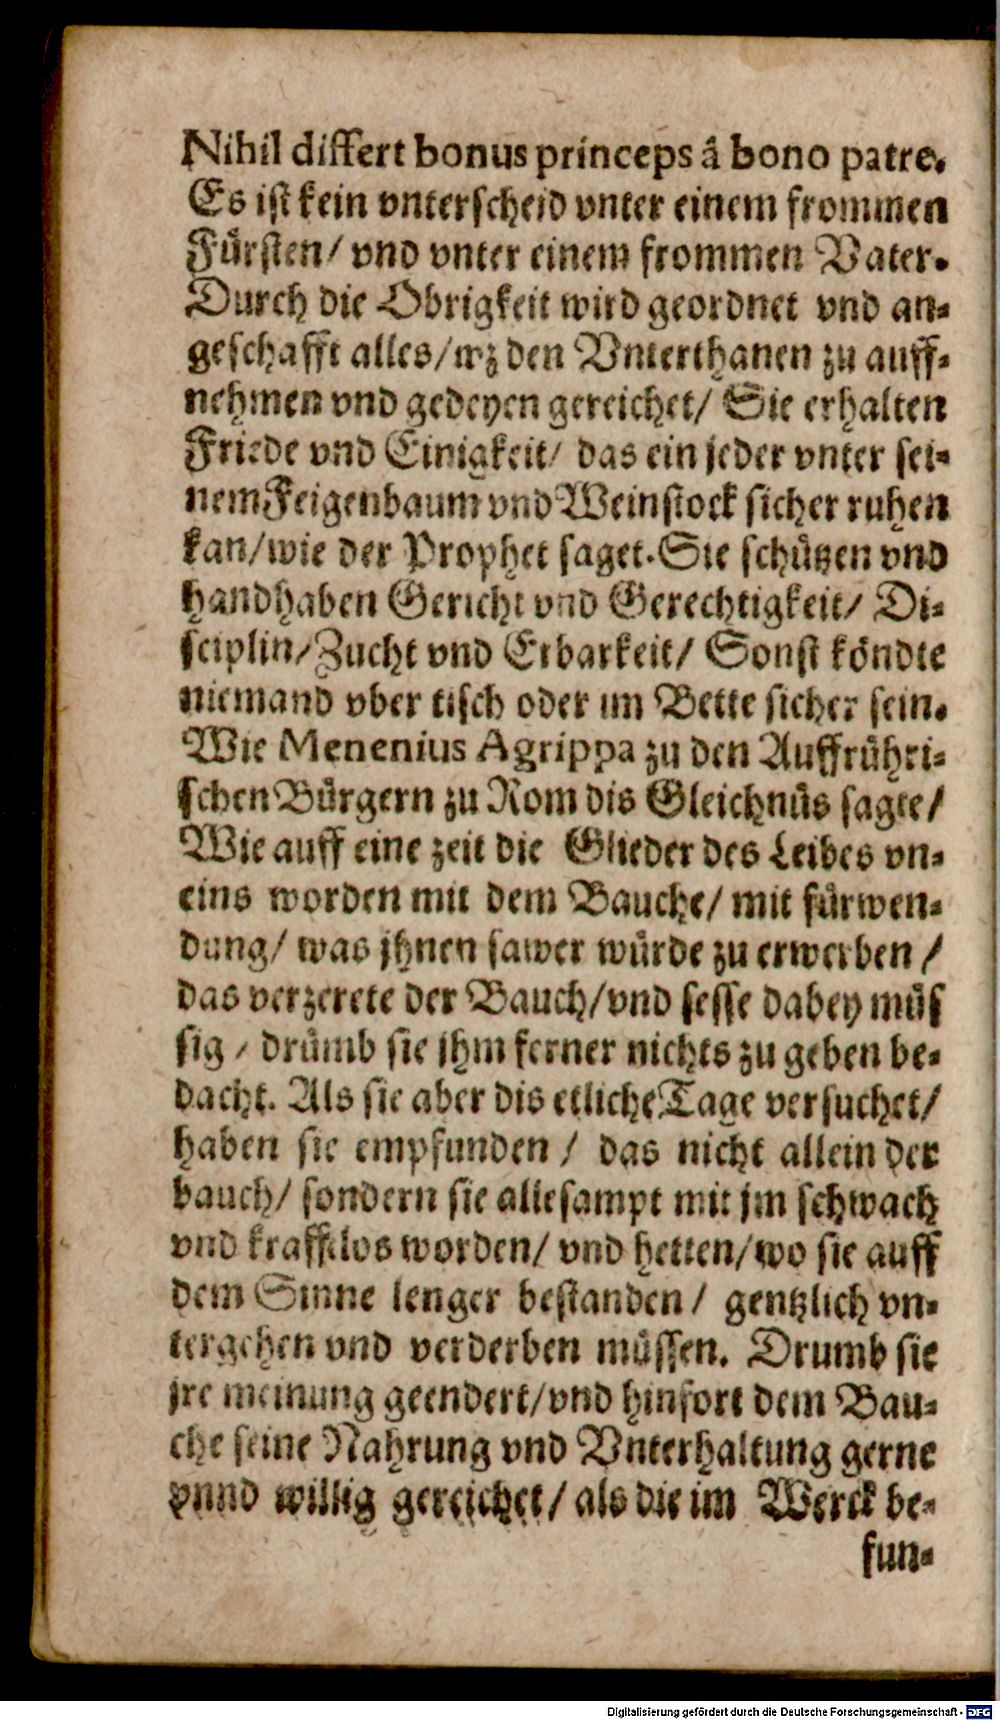 Nihil differt bonus princeps â bono patre.
Es ist kein vnterscheid vnter einem frommen
Fürsten/ vnd vnter einem frommen Vater.
Durch die Obrigkeit wird geordnet vnd an-
geschafft alles/wz den Vnterthanen zu auff-
nehmen vnd gedeyen gereichet/ Sie erhalten
Friede vnd Einigkeit/ das ein jeder vnter sei-
nem Feigenbaum vnd Weinstock sicher ruhen
kan/wie der Prophet saget. Sie schützen vnd
handhaben Gericht vnd Gerechtigkeit/ Di-
sciplin/Zucht vnd Erbarkeit/ Sonst köndte
niemand vber tisch oder im Bette sicher sein.
Wie Menenius Agrippa zu den Auffrühri-
schen Bürgern zu Rom dis Gleichnüs sagte/
Wie auff eine zeit die Glieder des Leibes vn-
eins worden mit dem Bauche/ mit fürwen-
dung/ was jhnen sawer würde zu erwerben /
das verzerete der Bauch/vnd sesse dabey müs
sig / drümb sie jhm ferner nichts zu geben be-
dacht. Als sie aber dis etliche Tage versuchet/
haben sie empfunden / das nicht allein der
bauch/ sondern sie allesampt mit jm schwach
vnd krafftlos worden/ vnd hetten/wo sie auff
dem Sinne lenger bestanden / gentzlich vn-
tergehen vnd verderben müssen. Drumb sie
jre meinung geendert/vnd hinfort dem Bau-
che seine Nahrung vnd Vnterhaltung gerne
vnnd willig gereichet/ als die im Werck be-
fun-
Digitalisierung gefördert durch die Deutsche Forschungsgemeinschaft - DFG